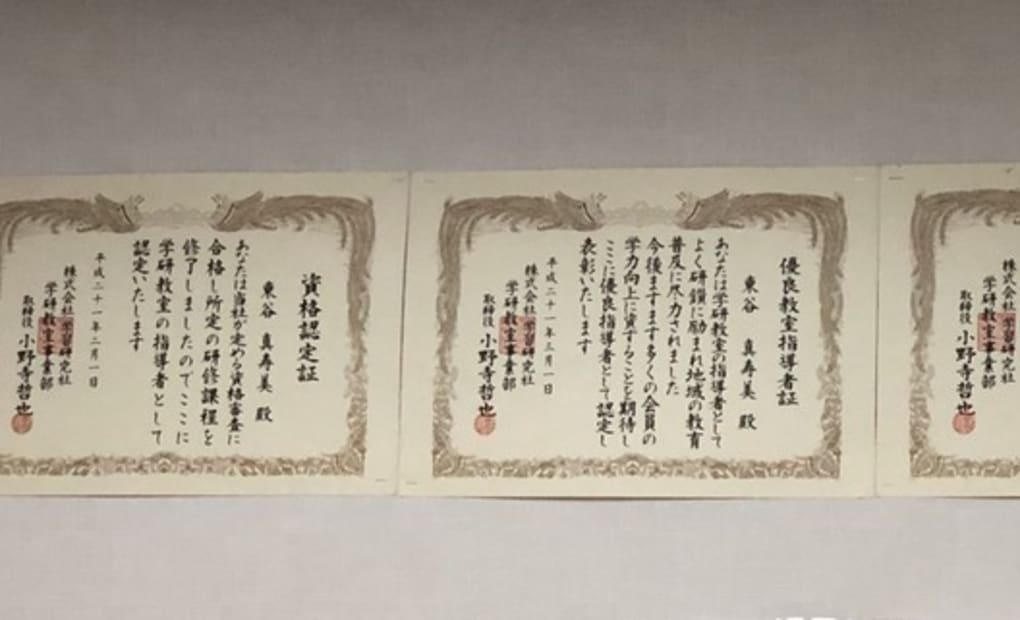 資格認定証
東谷 真寿美 殿
あなたは当社が定める資格審査に
合格し所定の研修課程を
修了しましたのでここに
学研教室の指導者として
認定いたします
平成二十一年二月一日
株式会社学習研究社
学研教室事業部
取締役 小野寺哲也
優良教室指導者証
東谷 真寿美 殿
あなたは学研教室の指導者として
よく研鑽に励まれ地域の教育
普及に尽力されました
今後ますます多くの会員の
学力向上に資することを期待し
ここに優良指導者として認定し
表彰いたします
平成二十一年三月一日
株式会社学習研究社
学研教室事業部
取締役 小野寺哲也
株式会社学習研究社
学研教室事業部
取締役 小野寺哲也